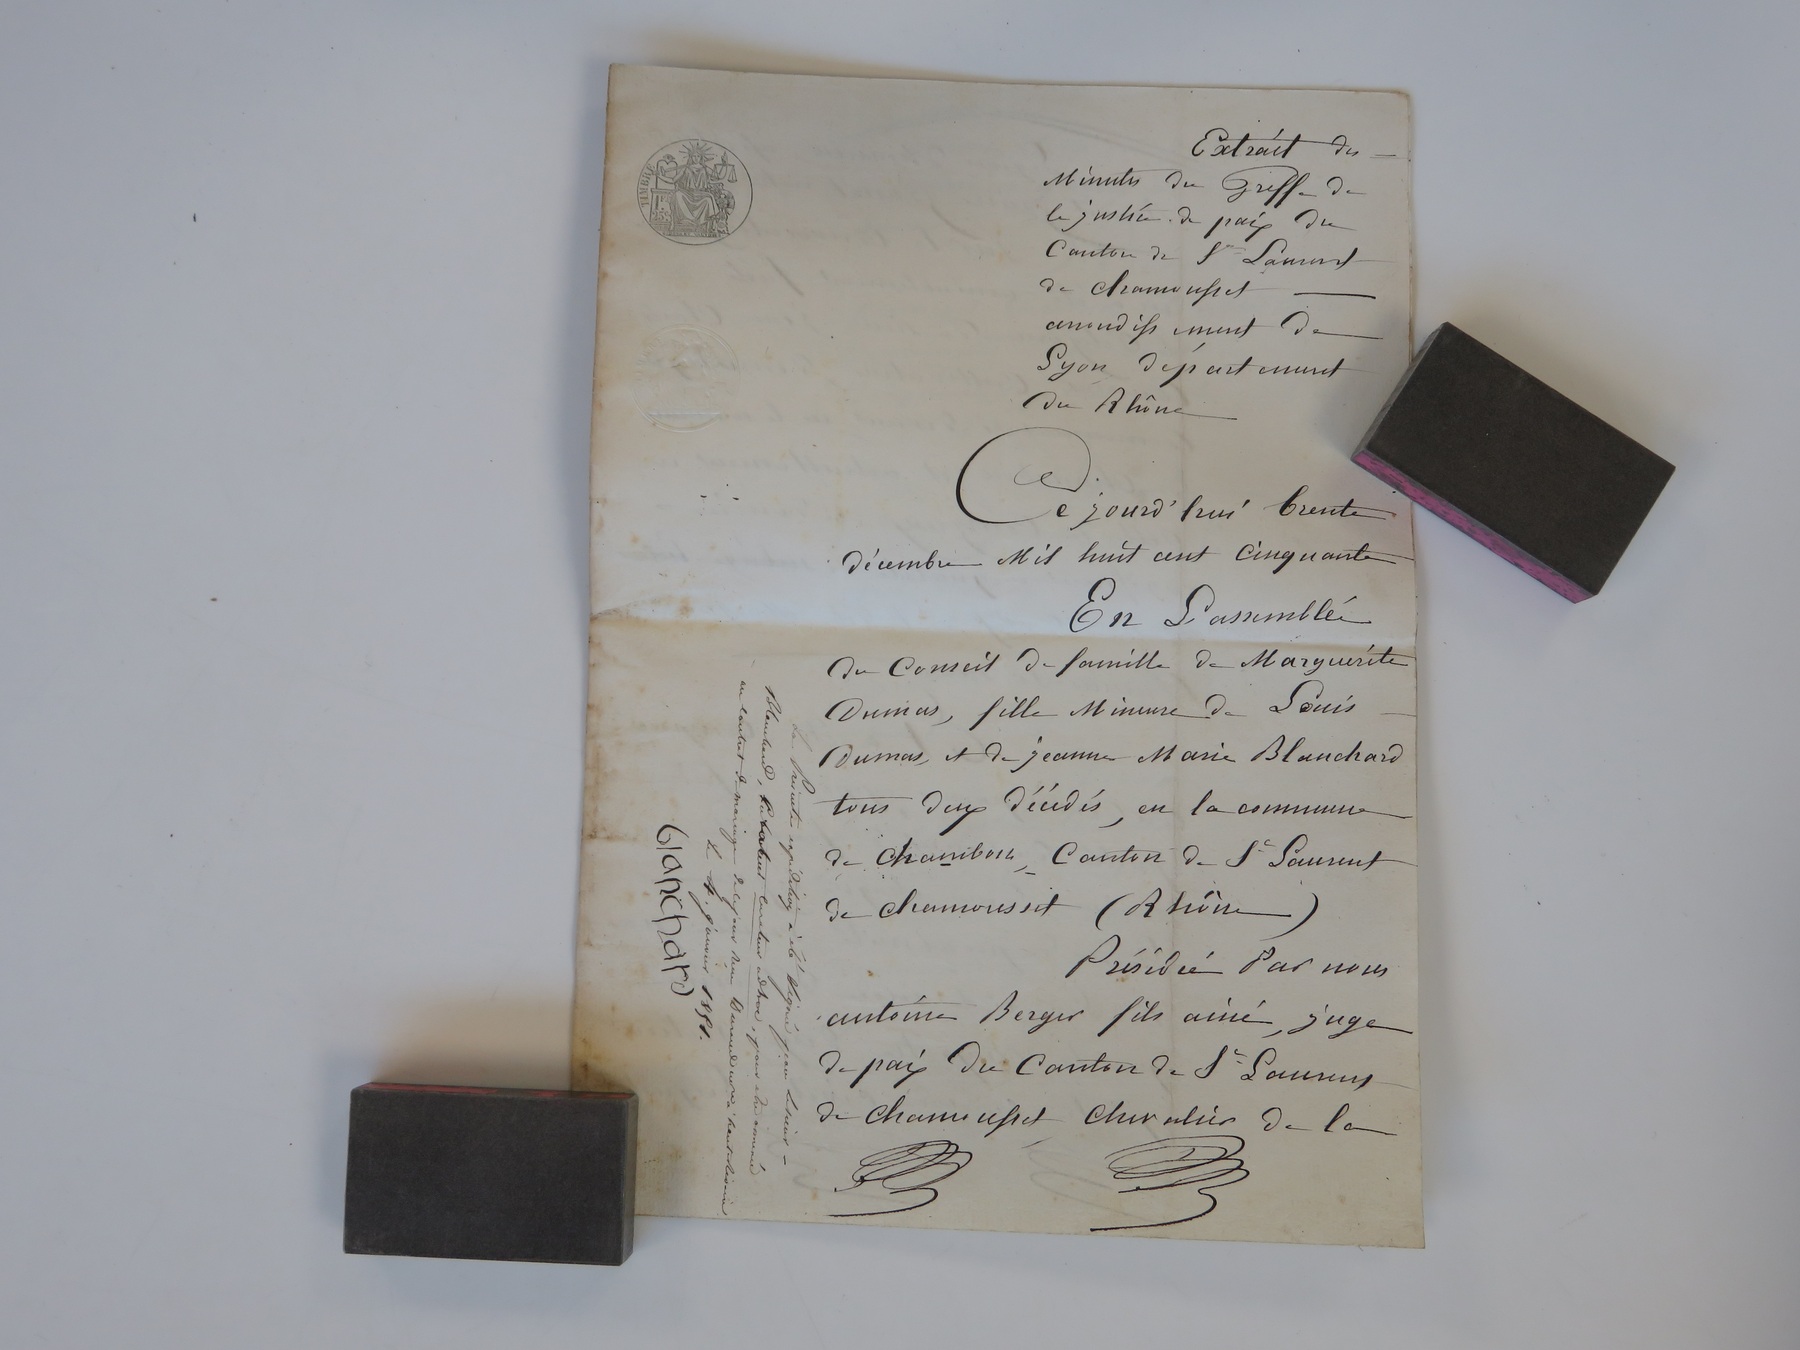 TIMBRE
Extrait des
Minutes du Greffe de
la justice de paix du
Canton de St Laurent
de chamousset
arrondissement de
Lyon département
du Rhône
Cejourd'hui trente
décembre Mil huit cent cinquante
En L'assemblée
du Conseil de famille de Marguérite
Dumas, fille Mineure de Louis
Dumas, et de jeanne Marie Blanchard
tous deux décédés, en la commune
de chambost, Canton de St Laurent
de chamousset (Rhône)
Présidée Par nous
antoine Berger fils ainé, juge
de paix du Canton de St Laurent
de chamousset chevalier de la
La Présente expédition à été jean
Blanchard, curateur
au contrat de mariage de ce jour
Le 4 janvier 1851.
Blanchard